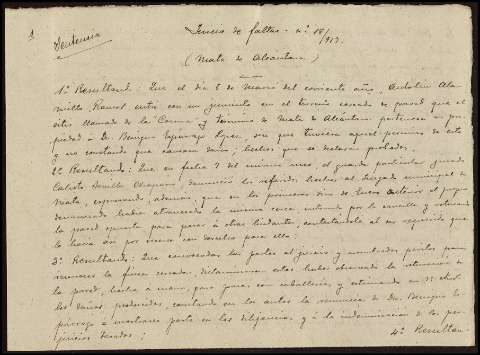 Sentencia
Juicio de faltas - nº 18/913.
(Mata de Alcántara)
1º Resultando: Que el dia 5 de Marzo del corriente año,
entró con un jumento en el terreno cercado de pared que al
sitio llamado de la "Corona" y término de Mata de Alcántara pertenece en pro-
piedad a D. Benigno sin que tuviera aquel permiso de este
y no constando que causara daño; hechos que se declaran probados.
2º Resultando: Que en fecha 7 del mismo mes, el guarda particular jurado
Calixto denunció los referidos hechos al Juzgado municipal de
Mata, expresando, además, que en los primeros dias de Enero anterior el propio
denunciado habia atravesado la misma cerca entrando por la
la pared opuesta para pasar á otras lindantes, contestándole al ser requerido que
lo hacia asi por creerse con derecho para ello.
3º Resultando: Que convocadas las partes al juicio y nombrados peritos para
reconocer la finca cercada, determinaron estos haber observado la
pared, hecha á mano, para pasar con caballeria, y estimando en
los daños producidos, constando en los autos la renuncia de Dn. Benigno
á mostrarse parte en las diligencias, y á la indemnización de los per-
juicios causados;
4º Resultan-